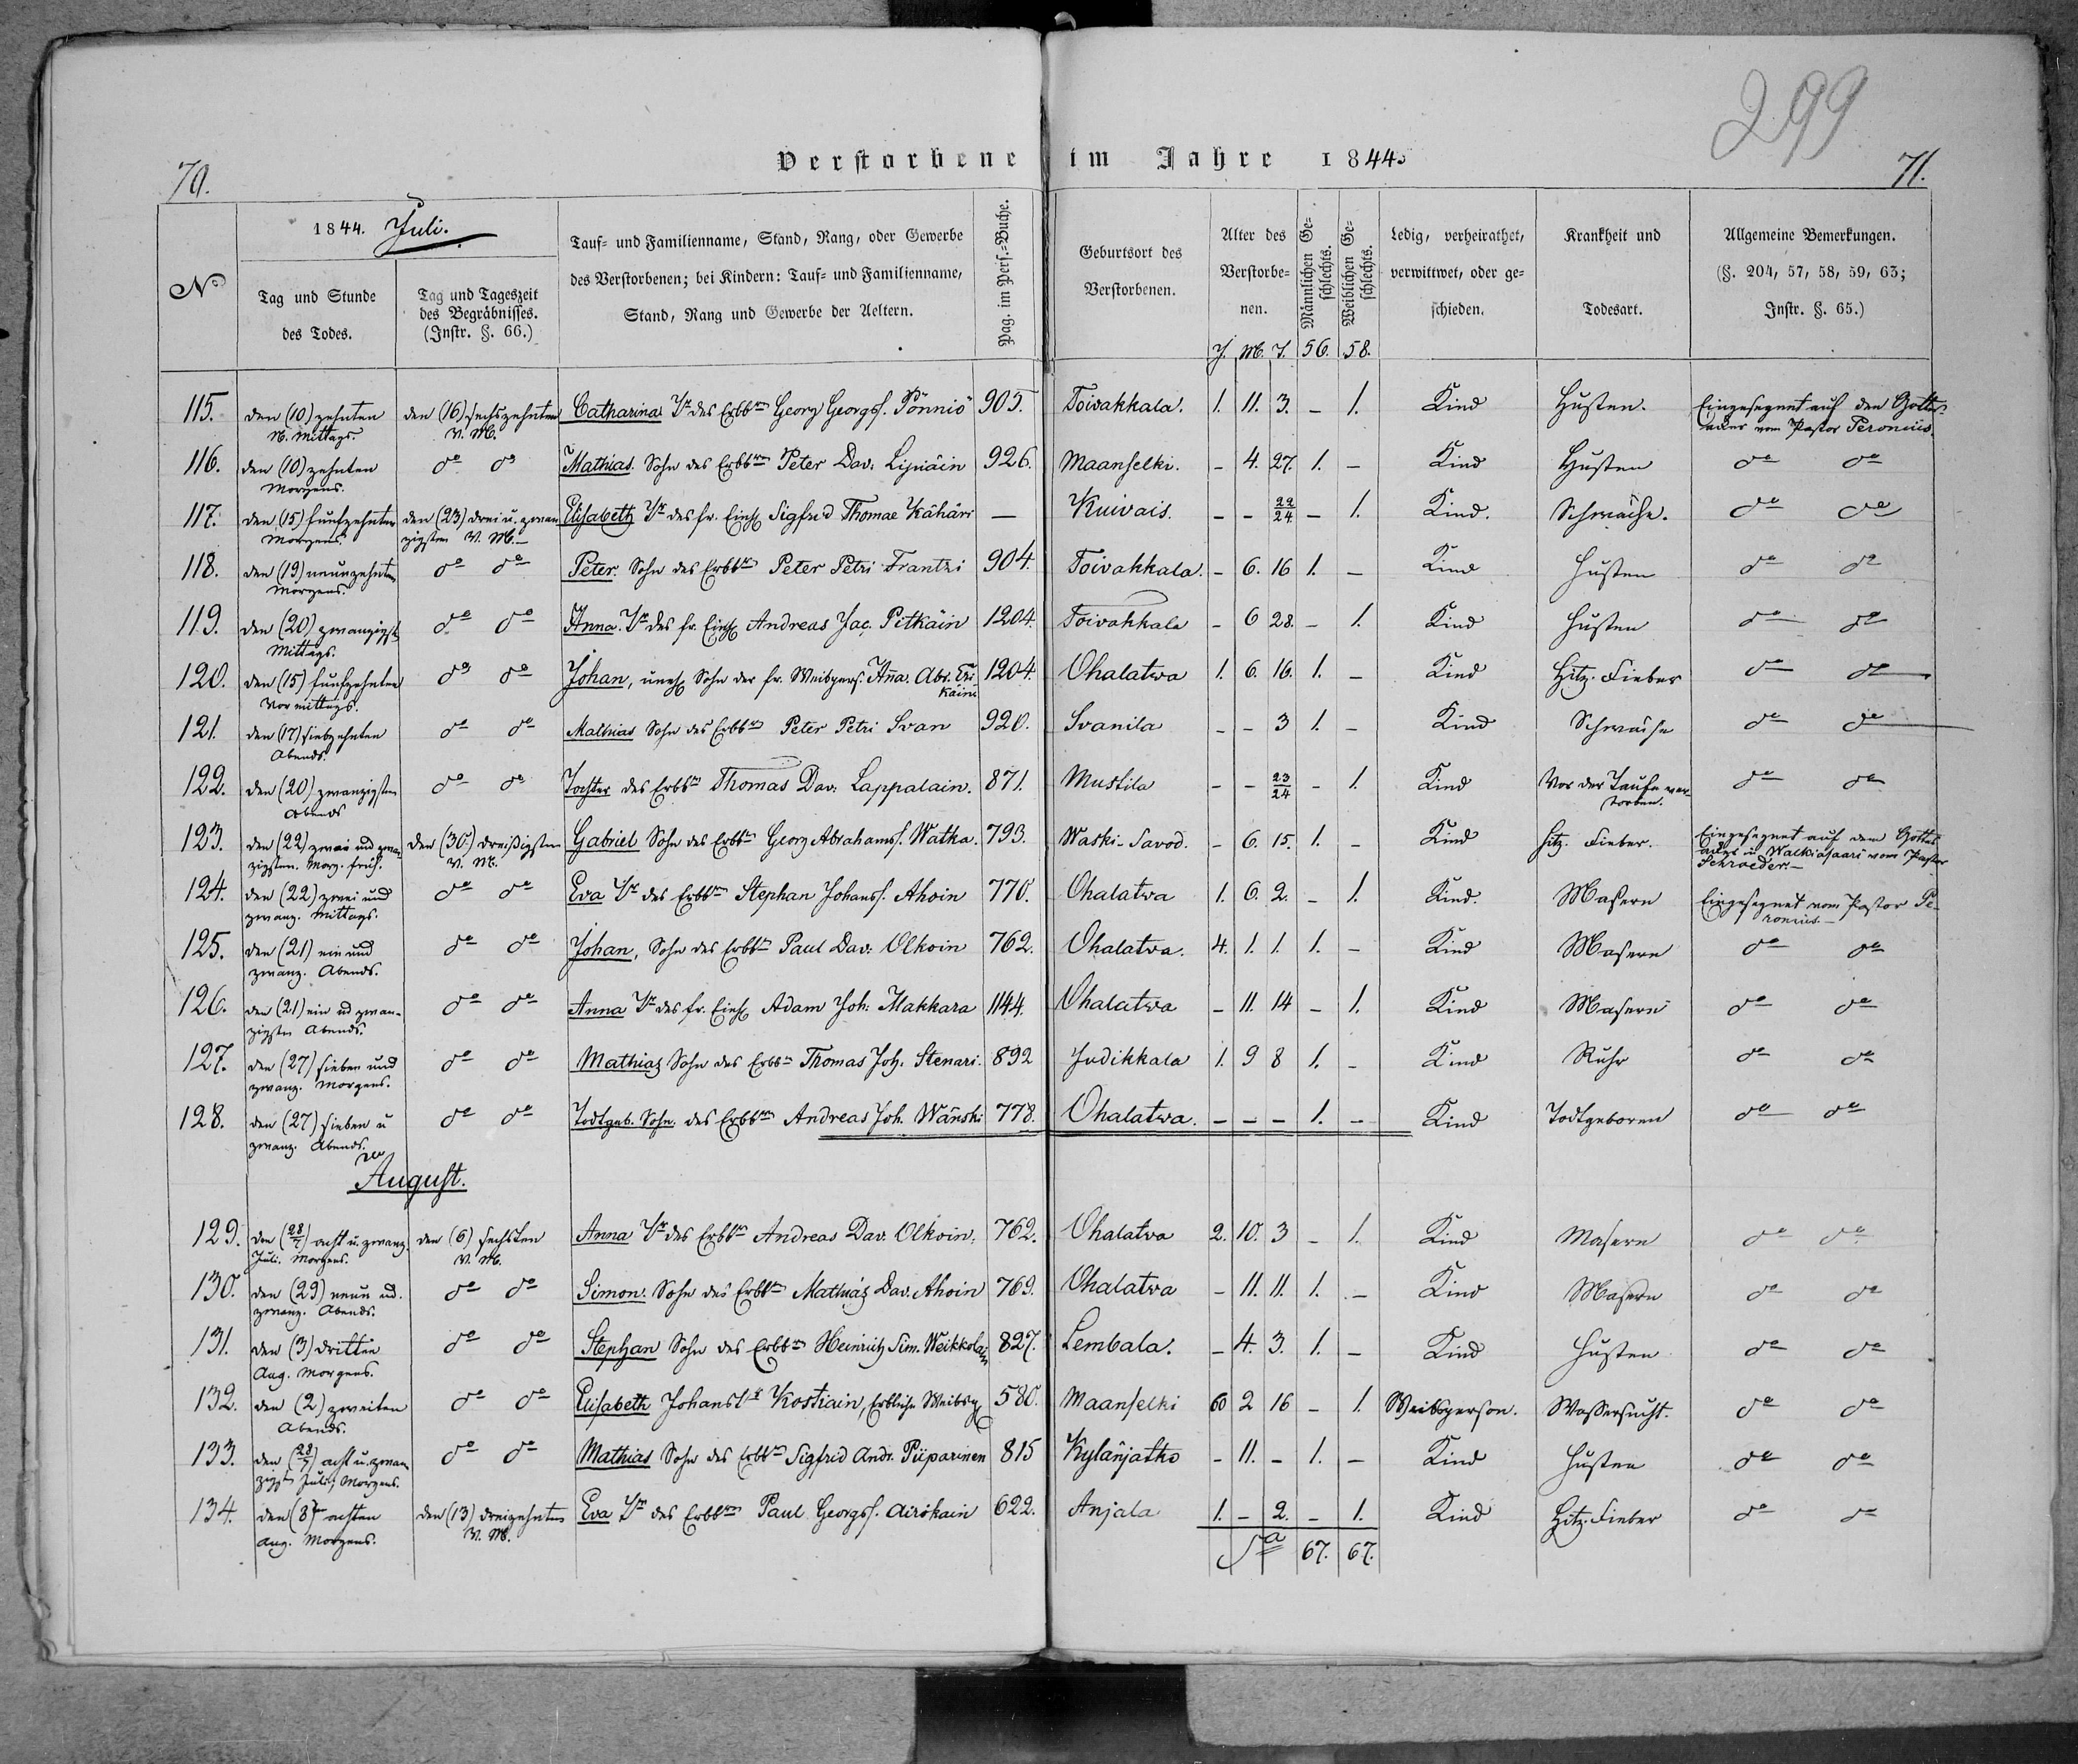 299
70.
Verstorbene im Jahre 1844.
71.
No
1844. Juli.
Tag und Stunde
des Todes.
Tag und Tageszeit
des Begräbnisses.
(Instr. §. 66.)
Tauf- und Familienname, Stand, Rang, oder Gewerbe
des Verstorbenen; bei Kindern: Tauf- und Familienname,
Stand, Rang und Gewerbe der Aeltern.
Pag. im Pers.-Buche.
Geburtsort des
Verstorbenen.
Alter des
Verstorbe-
nen.
J. M. T.
Männlichen Ge-
schlechts.
56.
Weiblichen Ge-
schlechts.
58.
Ledig, verheirathet,
verwittwet, oder ge-
schieden.
Krankheit und
Todesart.
Allgemeine Bemerkungen.
(§. 204, 57, 58, 59, 63;
Instr. §. 65.)
115. den (10) zehnten den (16) sechszehnten Catharina Tr des Erbbrn Georg Georgs. Pönniö 905. Toivakkala. 1. 11. 3. – 1. Kind Husten. Eingesegnet auf den Gottes-
N. Mittags. V. M. acker vom Pastor Peronius.
116. den (10) zehnten do do Mathias. Sohn des Erbbrn Peter Dav: Lipiäin 926. Maanselki. – 4. 27. 1. – Kind Husten do do
Morgens.
117. den (15) funfzehnten den (23) drei u. zwan Elisabeth Tr des fr. Einh Sigfrid Thomae Kähäri — Kuivais. – – 22/24 – 1. Kind. Schwäche. do do
Morgens. zigsten V. M.
118. den (19) neunzehnten do do Peter. Sohn des Erbbrn Peter Petri Frantzi 904. Toivakkala. – 6. 16 1. – Kind Husten do do
Morgens.
119. den (20) zwanzigst do do Anna. Tr des fr. Einh Andreas Jac. Pitkäin 1204. Toivakkala – 6 28. – 1. Kind Husten do do
Mittags.
120. den (15) funfzehnten do do Johan, uneh Sohn der fr. Weibspers. Anna. Abr. 1204. Ohalatwa 1. 6. 16. 1. – Kind Hitz. Fieber do do
Vormittags.
121. den (17) siebzehnten do do Mathias Sohn des Erbbrn Peter Petri Svan 920. Svanila – – 3 1. – Kind Schwäche do do
Abends.
122. den (20) zwanzigsten do do Tochter des Erbbrn Thomas Dav: Lappalain. 871. Mustila – – 23/24 – 1. Kind Vor der Taufe ver- do do
Abends storben.
123. den (22) zwei und zwan den (30.) dreißigsten Gabriel Sohn des Erbbrn Georg Abrahams. Watka. 793. Waski-Savod. – 6. 15. 1. – Kind hitz. Fieber. Eingesegnet auf dem Gottes
zigsten. Morg. früh. V. M. acker in Walkiasaari vom Pastor
Schroeder.
124. den (22) zwei und do do Eva Tr des Erbbrn Stephan Johans. Ahoin 770. Ohalatwa 1. 6. 2. – 1. Kind. Masern Eingesegnet vom Pastor Pe-
zwanz. Mittags. ronius.
125. den (21) ein und do do Johan, Sohn des Erbbrn Paul Dav: Olkoin 762. Ohalatwa. 4. 1. 1. 1. – Kind Masern do do
zwanz. Abends.
126. den (21) ein ud zwan- do do Anna Tr des fr. Einh Adam Joh: Makkara 1144. Ohalatwa – 11. 14 – 1. Kind Masern do do
zigsten Abends.
127. den (27) sieben und do do Mathias Sohn des Erbbrn Thomas Joh. Stenari. 892 Judikkala 1. 9 8 1. – Kind Ruhr do do
zwanz. Morgens.
128. den (27) sieben u do do Todtgeb. Sohn. des Erbbrn Andreas Joh. Wänski 778. Ohalatwa. – – – 1. – Kind Todtgeboren do do
zwanz. Abends.
August.
129. den (28/7) acht u. zwanz. den (6) sechsten Anna Tr des Erbbrn Andreas Dav. Olkoin. 762. Ohalatwa 2. 10. 3 – 1. Kind Masern do do
Juli. Morgens. V. M.
130. den (29) neun ud. do do Simon. Sohn des Erbbrn Mathias Dav. Ahoin 769. Ohalatwa – 11. 11. 1. – Kind Masern do do
zwanz. Abends.
131. den (3) dritten do do Stephan Sohn des Erbbrn Heinrich Sim. Weikkolain 827. Lembala. – 4. 3. 1. – Kind Husten do do
Aug. Morgens.
132. den (2) zweiten do do Elisabeth Johanstr Kostiain, Erbliche Weibsp 580. Maanselki 60 2 16 – 1. Weibsperson. Wassersucht. do do
Abends.
133. den (28/7) acht u. zwan do do Mathias Sohn des Erbbrn Sigfrid Andr. Piiparinen 815 Kylänjatko – 11. – 1. – Kind Husten do do
zigst Juli, Morgens.
134. den (8) achten den (13) dreizehnten Eva Tr des Erbbrn Paul Georgs. Airikain 622. Anjala 1. – 2. – 1. Kind Hitz. Fieber do do
Aug. Morgens. V. M.
Sa 67. 67.